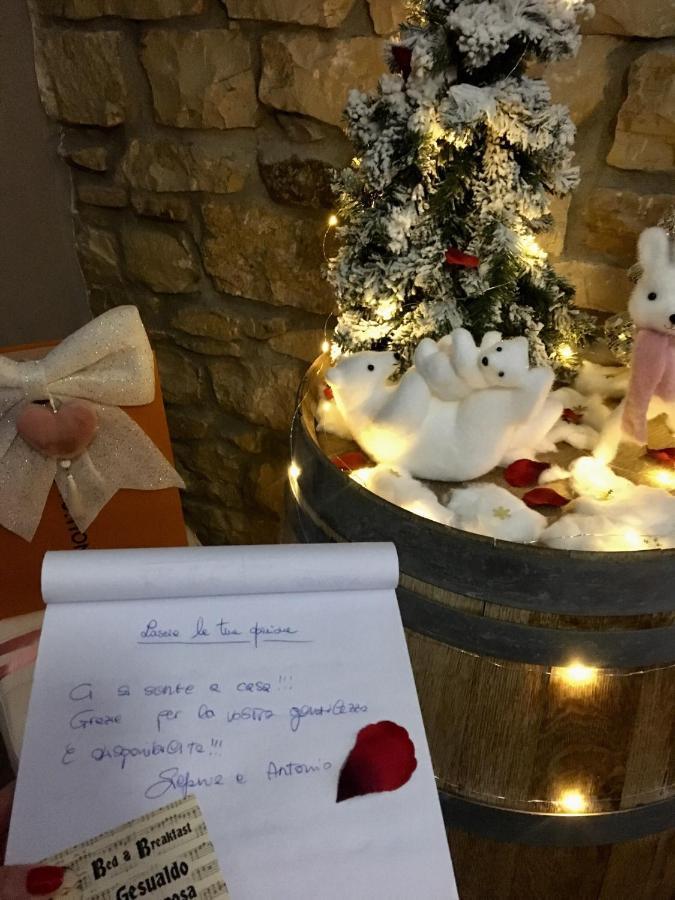 Lascia la tua opinione
Ci si sente a casa!!!
Grazie per la vostra gentilezza
E disponibilità!!!
e Antonio
Bed & Breakfast
Gesualdo
osa